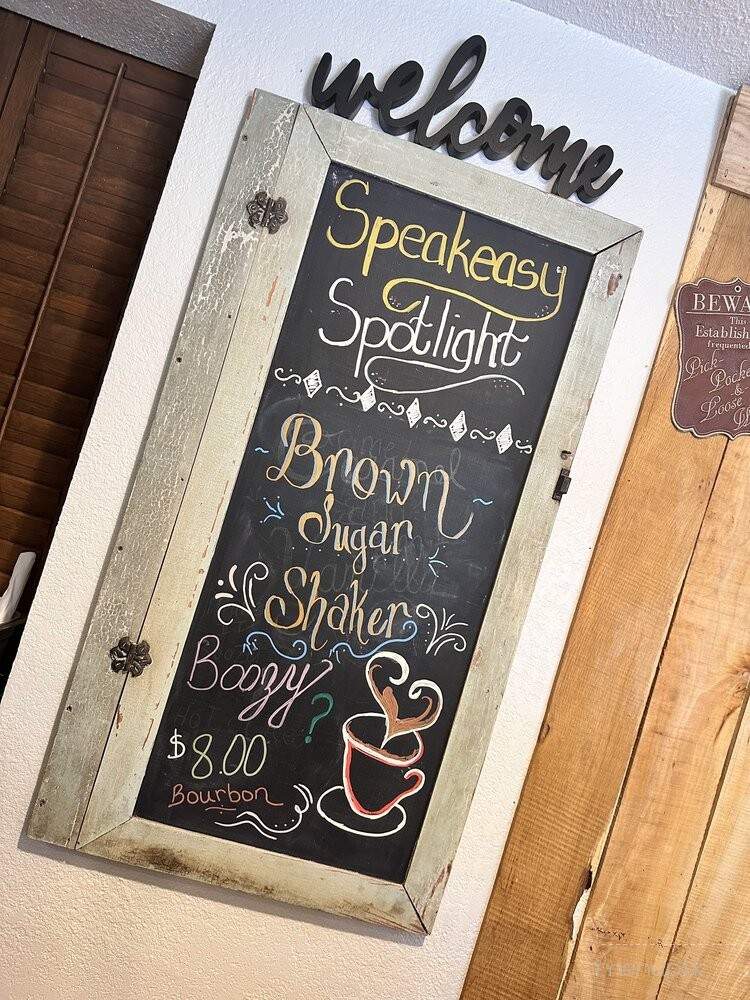 welcome
Speakeasy
Spotlight
Brown
Sugar
Shaker
Boozy
?
$8.00
Bourbon
BEWA
This
Establish
frequented
Pick-
Pocke
&
Loose